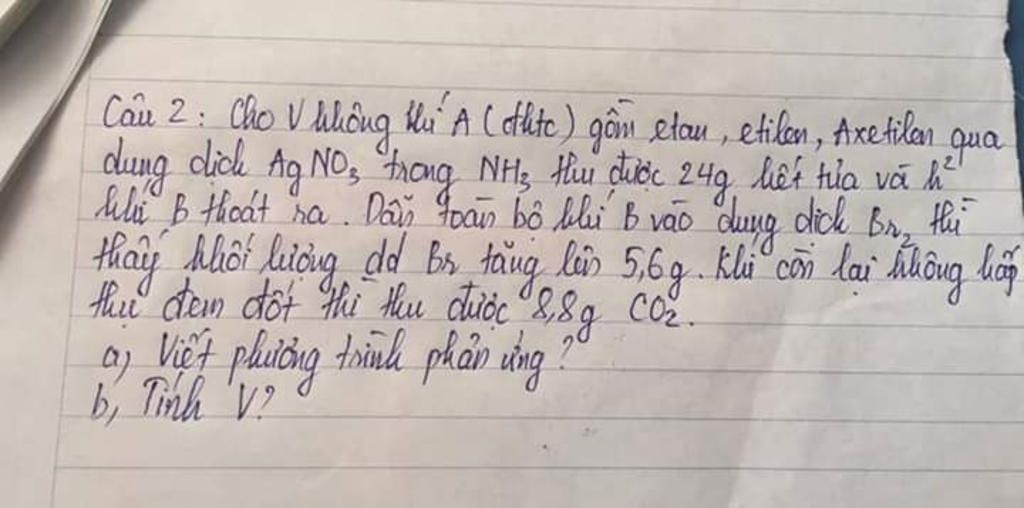 Câu 2: Cho V không khí A (đktc) gồm etan, etilen, Axetilen qua
dung dịch AgNO₃ trong NH₃ thu được 24g kết tủa và h²
khí B thoát ra. Dẫn toàn bộ khí B vào dung dịch Br₂ thì
thấy khối lượng dd Br tăng lên 5,6g. Khí còn lại không hấp
thụ đem đốt thì thu được 8,8g CO₂.
a, Viết phương trình phản ứng?
b, Tính V?